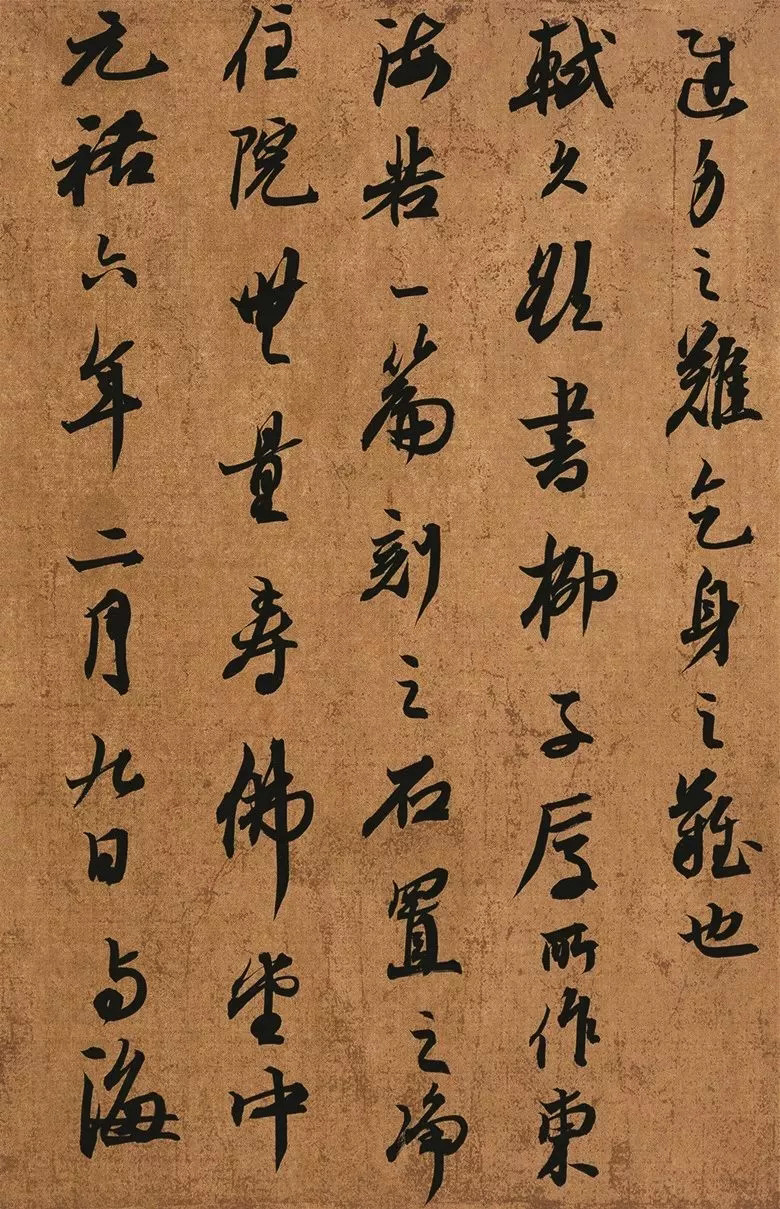 之難乞身之難也
軾久欲書柳子厚所作東
海若一篇刻之石置之淨
住院無量壽佛堂中
元祐六年二月九日与海